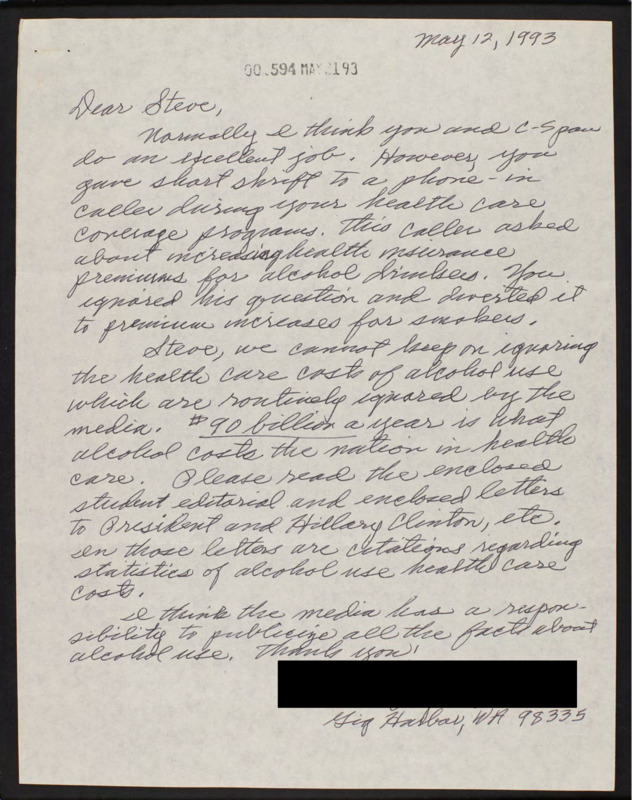 May 12, 1993
00.594 MAY 2193
Dear Steve,
Normally I think you and C-Span
do an excellent job. However, you
gave short shrift to a phone-in
caller during your health care
coverage programs. This caller asked
about increasing health insurance
premiums for alcohol drinkers. You
ignored his question and diverted it
to premium increases for smokers.
Steve, we cannot keep on ignoring
the health care costs of alcohol use
which are routinely ignored by the
media. $90 billion a year is what
alcohol costs the nation in health
care. Please read the enclosed
student editorial and enclosed letters
to President and Hillary Clinton, etc.
In those letters are citations regarding
statistics of alcohol use health care
costs.
I think the media has a respon-
sibility to publicize all the facts about
alcohol use. Thank you!
Gig Harbor, WA 98335